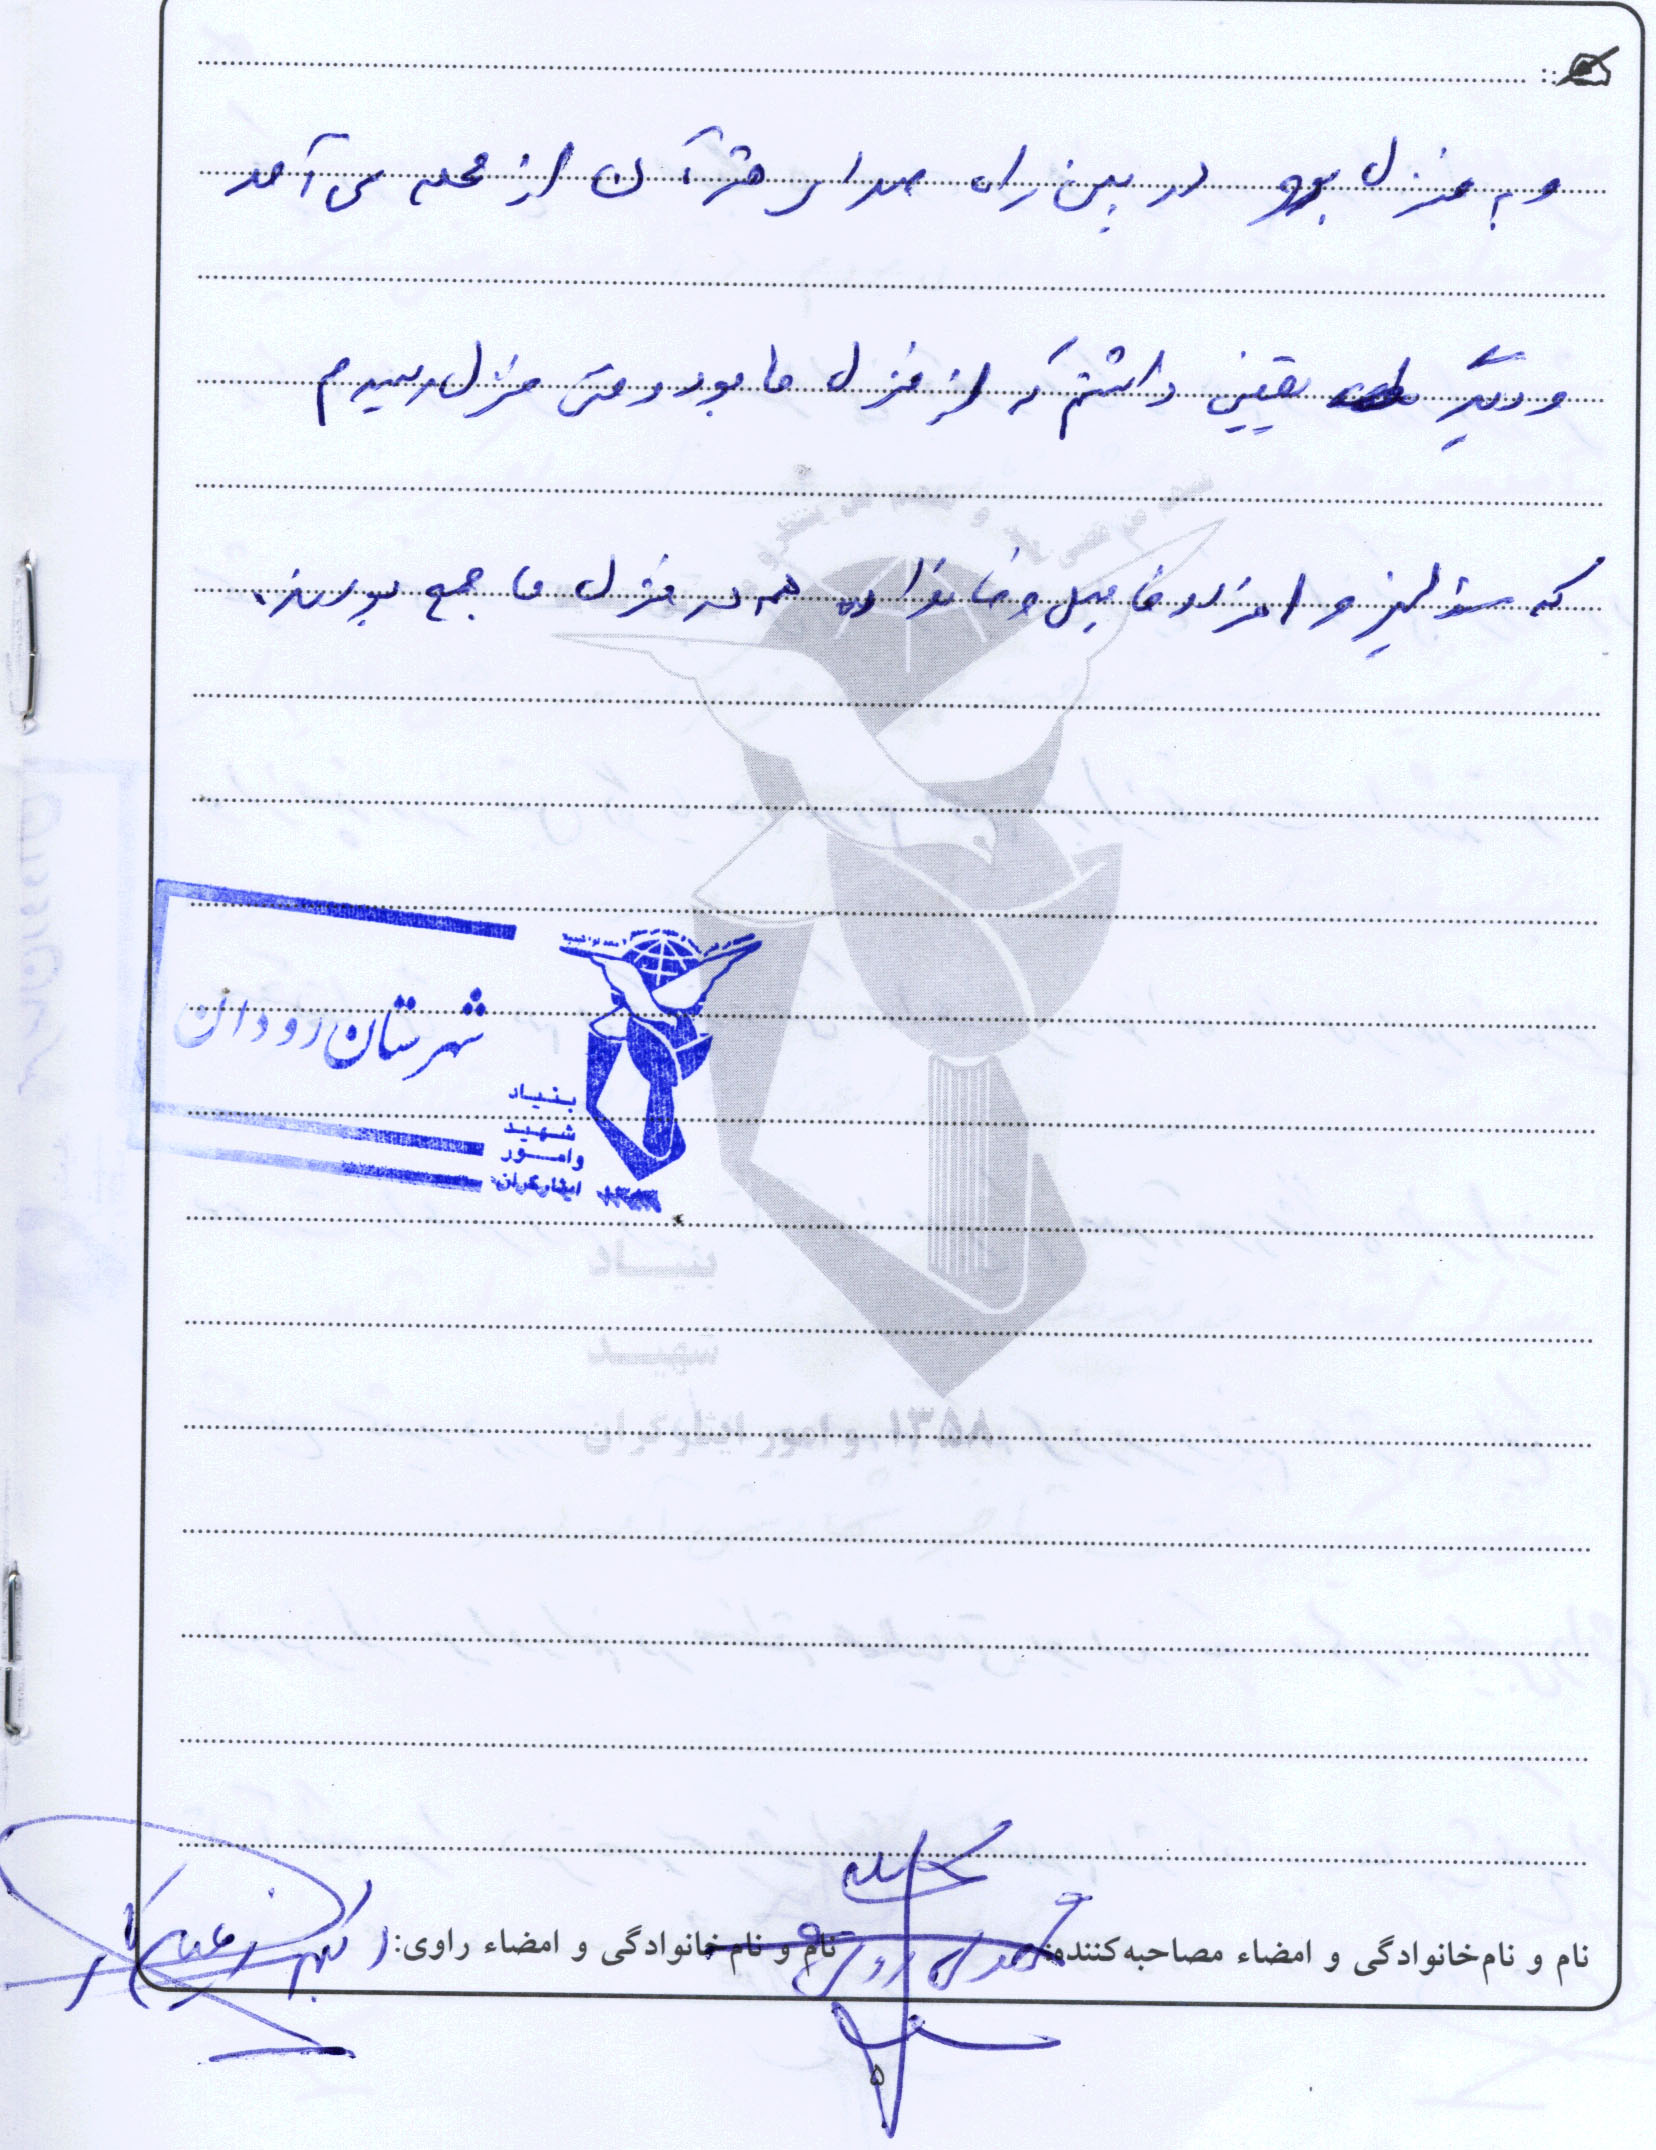 و به منزل بود در بین راه صدای قرآن از محله می آمد
و دیگر یقین داشتم که از منزل ما بود وقتی منزل رسیدم
که افراد فامیل و خانواده همه در منزل ما جمع بودند.
شهرستان رودان
بنیاد
شهید
و امور
ایثارگران
بنیاد
شهید
و امور ایثارگران ۱۳۵۸
نام و نام‌خانوادگی و امضاء مصاحبه‌کننده: نام و نام‌خانوادگی و امضاء راوی:
۵